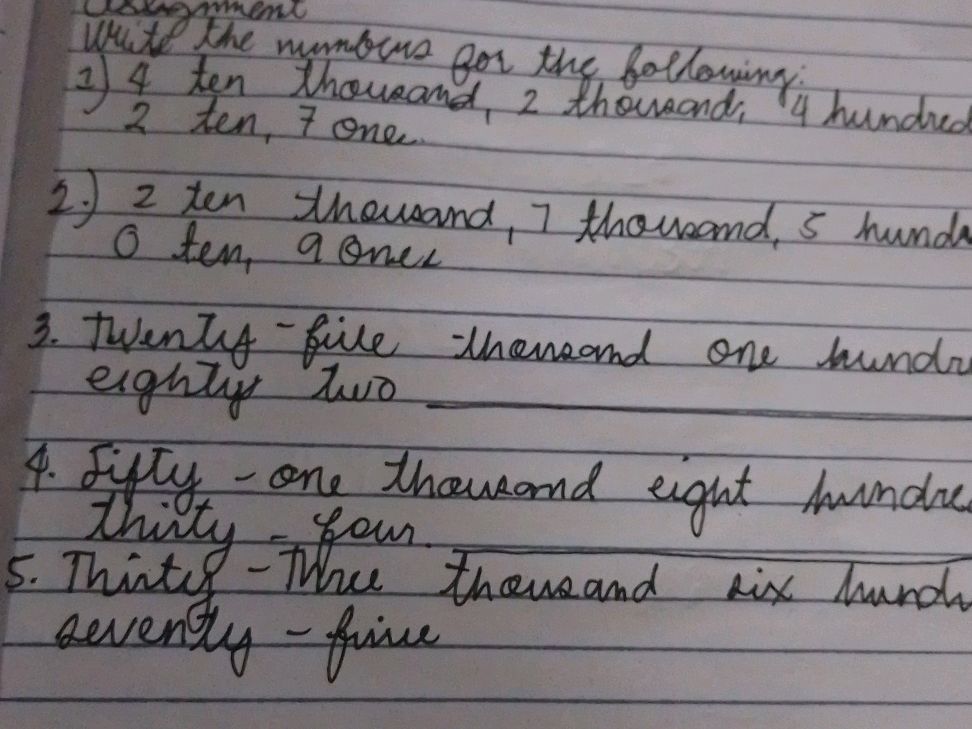 Assignment
Write the numbers for the following:
1) 4 ten thousand, 2 thousand, 4 hundred
2 ten, 7 one.
2.) 2 ten thousand, 7 thousand, 5 hund
0 ten, 9 ones
3. Twenty-five thousand one hundr
eighty two
4. Fifty-one thousand eight hundre
thirty-four.
5. Thirty-Three thousand six hund
seventy-five